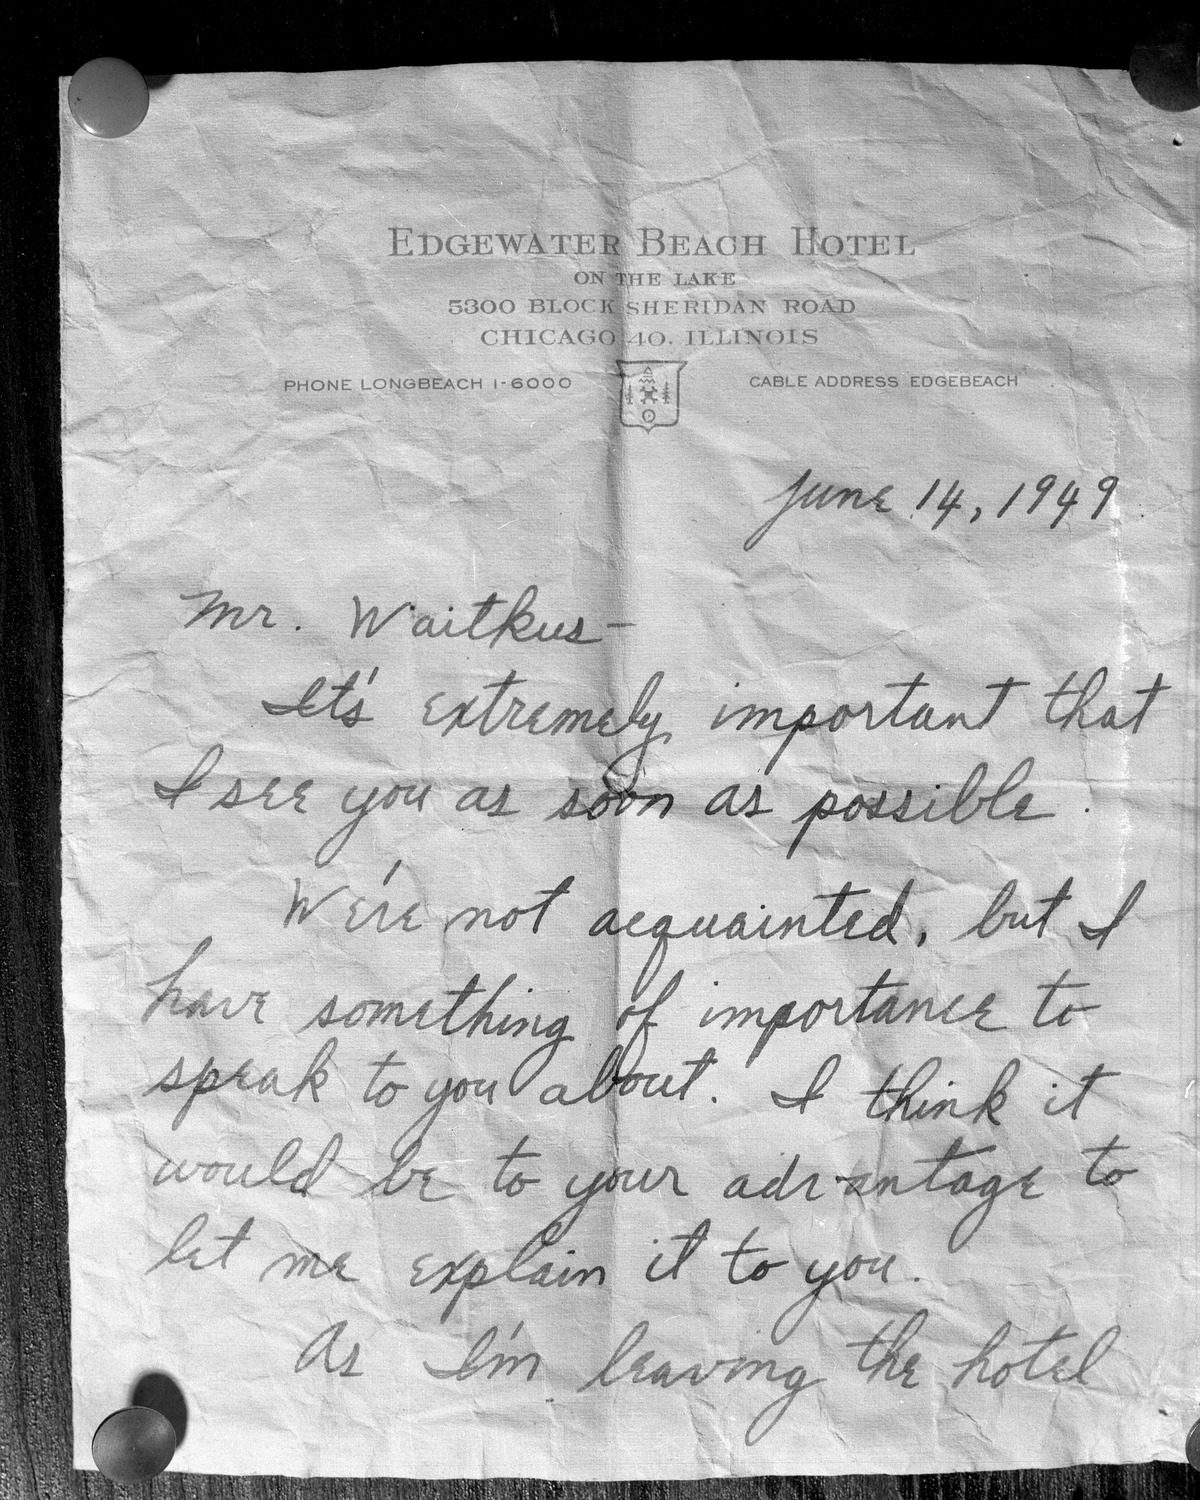 EDGEWATER BEACH HOTEL
ON THE LAKE
5300 BLOCK SHERIDAN ROAD
CHICAGO 40, ILLINOIS
PHONE LONGBEACH 1-6000
CABLE ADDRESS EDGEBEACH
June 14, 1949
Mr. Waitkus-
It's extremely important that
I see you as soon as possible.
We're not acquainted, but I
have something of importance to
speak to you about. I think it
would be to your advantage to
let me explain it to you.
As I'm leaving the hotel